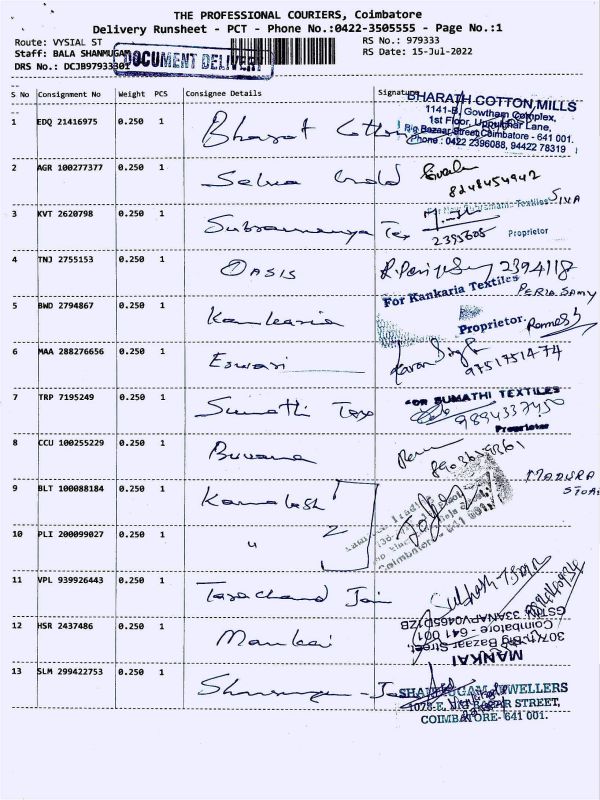 THE PROFESSIONAL COURIERS, Coimbatore
Delivery Runsheet - PCT - Phone No.:0422-3505555 - Page No.:1
Route: VYSIAL ST
RS No.: 979333
Staff: BALA SHANMUGAM
RS Date: 15-Jul-2022
DRS No.: DCJB97933301
DOCUMENT DELIVERY
S No Consignment No Weight PCS Consignee Details Signature
BHARATH COTTON MILLS
1141-B, Gowtham Complex,
1st Floor, Uppukinar Lane,
Big Bazaar Street, Coimbatore - 641 001.
Phone : 0422 2396088, 94422 78319
1 EDQ 21416975 0.250 1 Bharat Cotton
2 AGR 100277377 0.250 1 Selva Gold
8248454942
3 KVT 2620798 0.250 1 Subramanya Tex
SIVA
2395605 Proprietor
4 TNJ 2755153 0.250 1 OASIS
2394118
PERIA SAMY
For Kankaria Textiles
5 BWD 2794867 0.250 1 Kankaria
Proprietor. Ramesh
6 MAA 288276656 0.250 1 Eswari
Karan Singh
9751751474
7 TRP 7195249 0.250 1 Sumathi Tex
FOR SUMATHI TEXTILES
9894337450
Proprietor
8 CCU 100255229 0.250 1 Buvana
MADURA
9 BLT 100088184 0.250 1 Kamalesh
10 PLI 200099027 0.250 1 " 2
Coimbatore - 641 001
11 VPL 939926443 0.250 1 Tarachand Jain
Subhash
12 HSR 2437486 0.250 1 Mankai
MANKAI
307/1, Big Bazaar Street,
Coimbatore - 641 001
GSTIN: 33ANAPV0465D1ZB
13 SLM 299422753 0.250 1
SHANMUGAM JEWELLERS
1028-E, BIG BAZAR STREET,
COIMBATORE- 641 001.